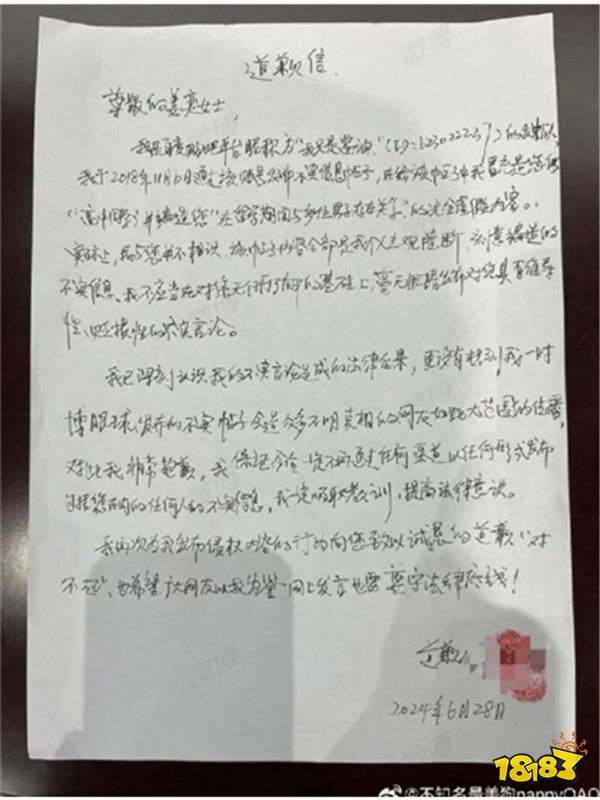 道歉信.
尊敬的姜亮女士,
我是百度贴吧平台昵称为"我只是酱油"(ID:623022237)的
我于2018年11月6日通过该账号发布不实信息帖子,在给该帖子中我冒充是您的
("高中同学")并编造您"在留学期间与多位男子存在关系"的完全虚假内容。
实际上,我与您并不相识,该帖子内容全部是我个人主观臆断、刻意编造的
不实信息,我不应当在对您无任何了解的基础上,毫无根据发布对您具有侮辱
性、的不实言论。
我已深刻认识我的不实言论造成的法律后果,更没有想到我一时
博眼球发布的不实帖子会造众多不明真相的网友如此大范围的传播,
对此我非常抱歉,我保证今后一定不再通过任何渠道以任何形式发布
包括您在内的任何人的不实信息,我一定吸取教训,提高法律意识。
我再次为我发布侵权内容的行为向您致以诚恳的道歉"对
不起",也希望广大网友以我为鉴,网上发言也要遵守法律底线!
道歉人
2024年6月28日
18183
@不知名最美狗nappyOAO
微博